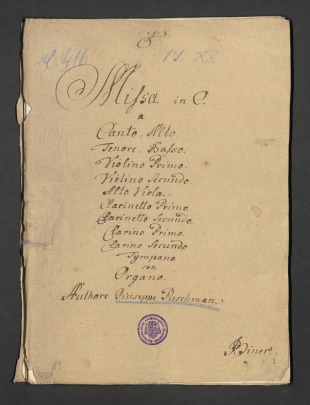 C. 416
17 XX
Missa in C.
a
Canto, Alto,
Tenore, Basso.
Violino Primo.
Violino Secundo.
Alto Viola.
Clarinetto Primo
Clarinetto Secundo.
Clarino Primo.
Clarino Secundo
Tympano
con
Organo.
Authore Giuseppe Puschman.